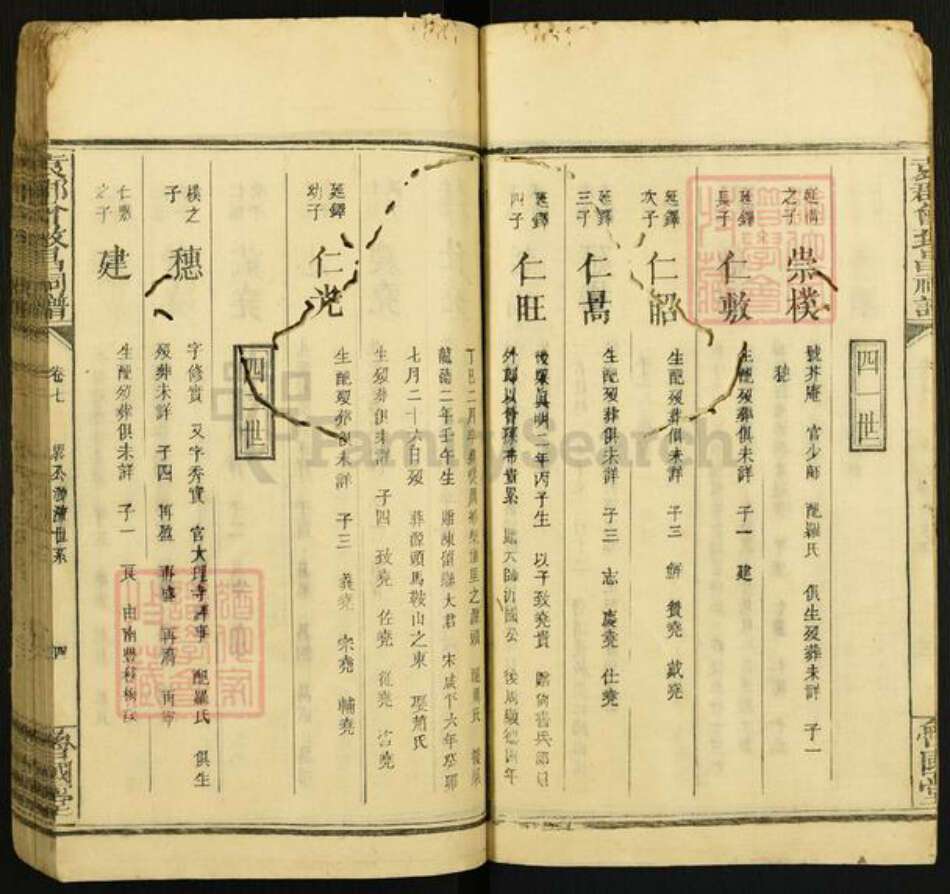 四一世
延構之子
崇樸
號芥庵 官少師 配羅氏 俱生歿葬未詳 子一
穗
延鐸長子
仁敷
生配歿葬俱未詳 子一 建
延鐸次子
仁昭
生配歿葬俱未詳 子三 餠 贊堯 戴堯
延鐸三子
仁暠
生配歿葬俱未詳 子三 志 慶堯 仕堯
延鐸四子
仁旺
後梁貞明二年丙子生 以子致堯貴 贈尚書兵部員
外郎以曾孫布貴累 贈太師沂國公 後周顯德四年
龍德二年壬午生 贈陳留縣太君 宋咸平六年癸卯
七月二十六日歿 葬源頭馬鞍山之東
生歿葬俱未詳 子四 致堯 佐堯 從堯 咨堯
延鐸幼子
仁光
生配歿葬俱未詳 子三 義堯 宗堯 輔堯
四二世
樸之子
穗
字修實 又字秀實 官大理寺評事 配羅氏 俱生
歿葬未詳 子四 再盈 再盛 再
仁敷之子
建
生配歿葬俱未詳 子一 由南豐
卷七
四
魯國堂
FamilySearch